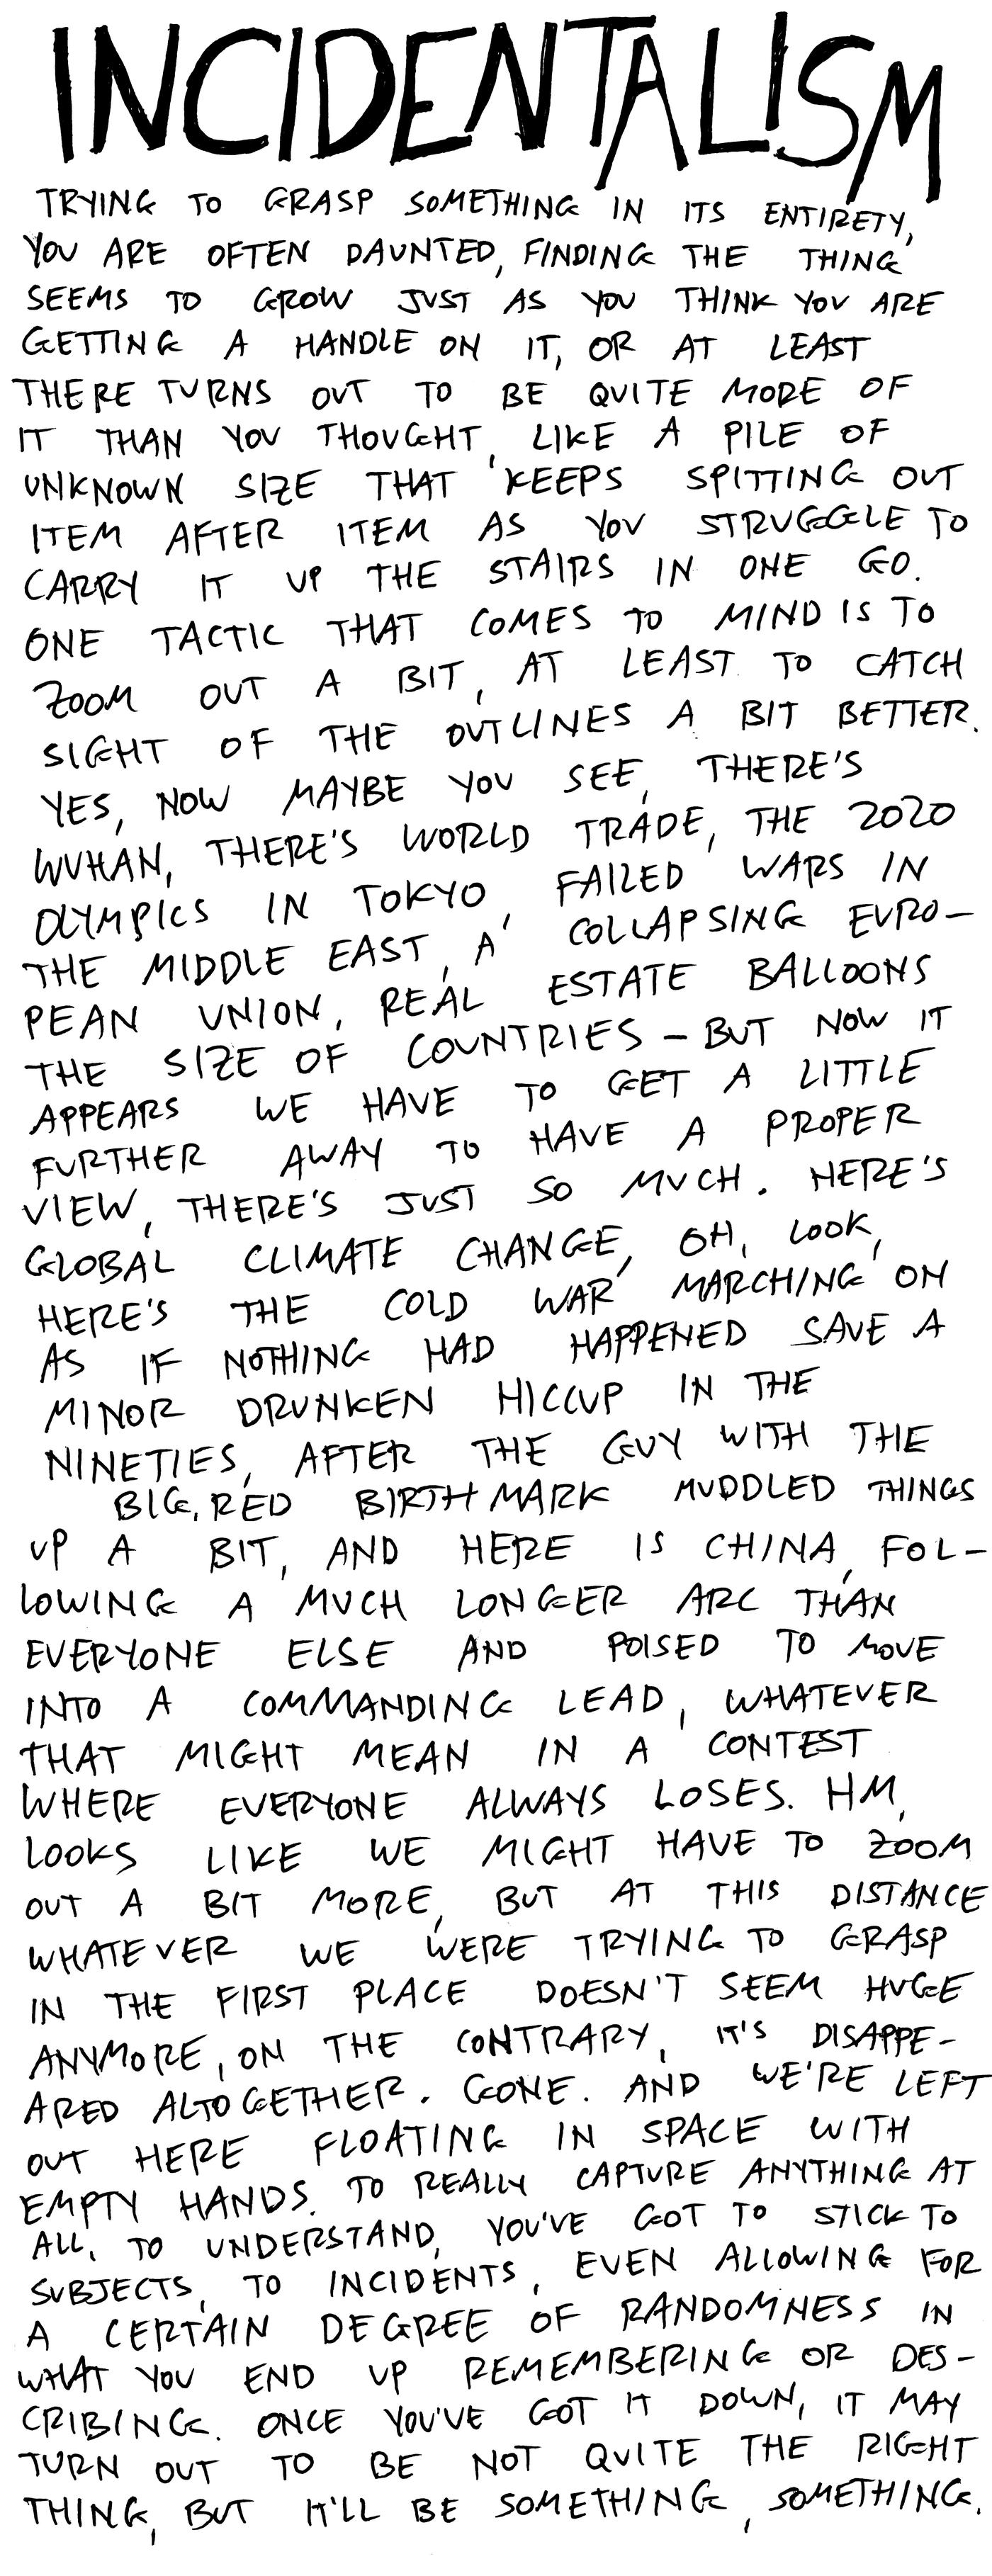 INCIDENTALISM
TRYING TO GRASP SOMETHING IN ITS ENTIRETY,
YOU ARE OFTEN DAUNTED, FINDING THE THING
SEEMS TO GROW JUST AS YOU THINK YOU ARE
GETTING A HANDLE ON IT, OR AT LEAST
THERE TURNS OUT TO BE QUITE MORE OF
IT THAN YOU THOUGHT, LIKE A PILE OF
UNKNOWN SIZE THAT KEEPS SPITTING OUT
ITEM AFTER ITEM AS YOU STRUGGLE TO
CARRY IT UP THE STAIRS IN ONE GO.
ONE TACTIC THAT COMES TO MIND IS TO
ZOOM OUT A BIT, AT LEAST TO CATCH
SIGHT OF THE OUTLINES A BIT BETTER.
YES, NOW MAYBE YOU SEE, THERE'S
WUHAN, THERE'S WORLD TRADE, THE 2020
OLYMPICS IN TOKYO, FAILED WARS IN
THE MIDDLE EAST, A COLLAPSING EURO-
PEAN UNION, REAL ESTATE BALLOONS
THE SIZE OF COUNTRIES – BUT NOW IT
APPEARS WE HAVE TO GET A LITTLE
FURTHER AWAY TO HAVE A PROPER
VIEW, THERE'S JUST SO MUCH. HERE'S
GLOBAL CLIMATE CHANGE, OH, LOOK,
HERE'S THE COLD WAR MARCHING ON
AS IF NOTHING HAD HAPPENED SAVE A
MINOR DRUNKEN HICCUP IN THE
NINETIES, AFTER THE GUY WITH THE
BIG, RED BIRTHMARK MUDDLED THINGS
UP A BIT, AND HERE IS CHINA, FOL-
LOWING A MUCH LONGER ARC THAN
EVERYONE ELSE AND POISED TO MOVE
INTO A COMMANDING LEAD, WHATEVER
THAT MIGHT MEAN IN A CONTEST
WHERE EVERYONE ALWAYS LOSES. HM,
LOOKS LIKE WE MIGHT HAVE TO ZOOM
OUT A BIT MORE, BUT AT THIS DISTANCE
WHATEVER WE WERE TRYING TO GRASP
IN THE FIRST PLACE DOESN'T SEEM HUGE
ANYMORE, ON THE CONTRARY, IT'S DISAPPE-
ARED ALTOGETHER. GONE. AND WE'RE LEFT
OUT HERE FLOATING IN SPACE WITH
EMPTY HANDS. TO REALLY CAPTURE ANYTHING AT
ALL, TO UNDERSTAND, YOU'VE GOT TO STICK TO
SUBJECTS, TO INCIDENTS, EVEN ALLOWING FOR
A CERTAIN DEGREE OF RANDOMNESS IN
WHAT YOU END UP REMEMBERING OR DES-
CRIBING. ONCE YOU'VE GOT IT DOWN, IT MAY
TURN OUT TO BE NOT QUITE THE RIGHT
THING, BUT IT'LL BE SOMETHING, SOMETHING.